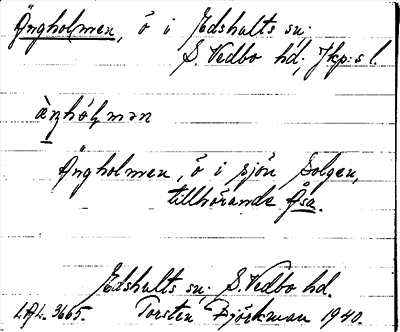 Ängholmen, ö i Edshults sn.
S. Vedbo hd; Jkp:s l.
äŋhólmən
Ängholmen, ö i sjön Solgen,
tillhörande Åsa.
Edshults sn; S. Vedbo hd.
LAL. 3665. Torsten Björkman 1940.